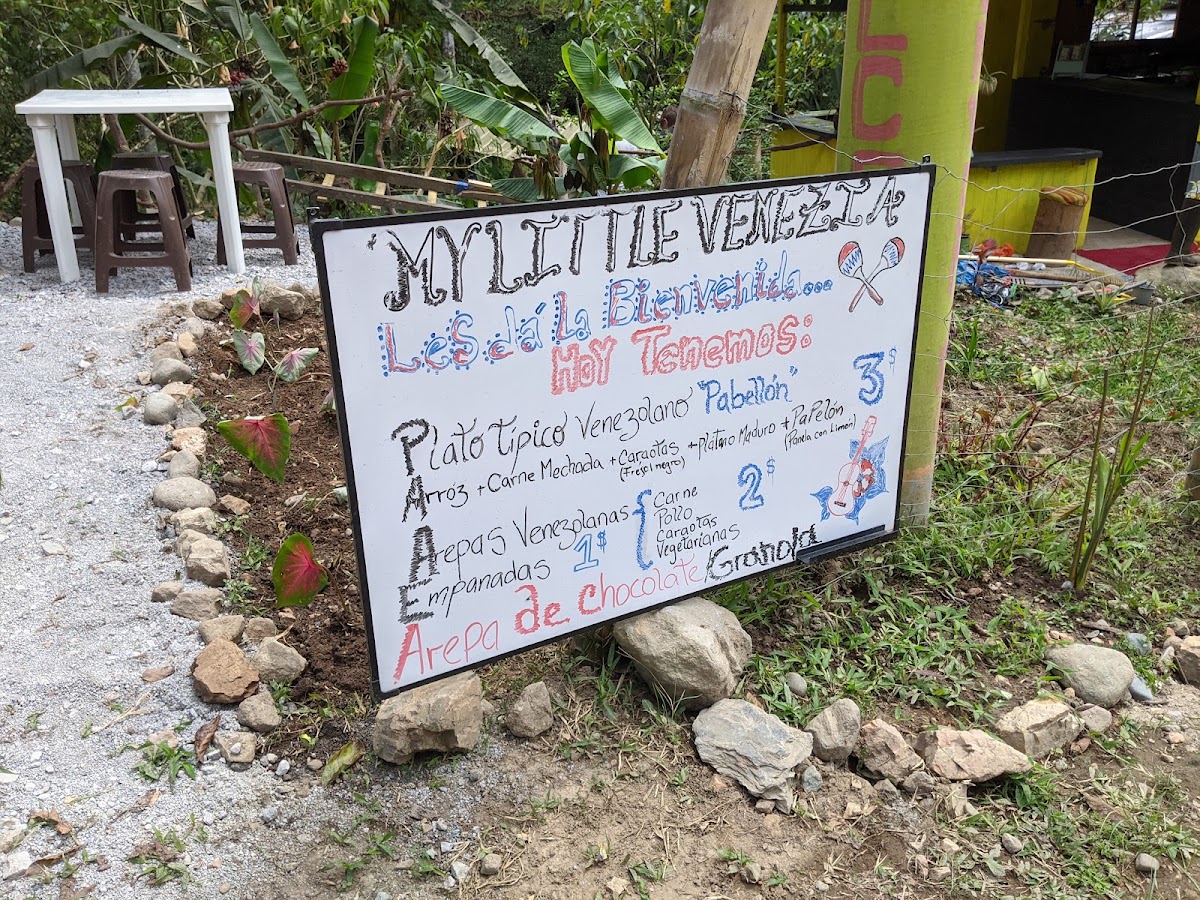 "MY LITTLE VENEZIA
Les dá la Bienvenida...
HOY Tenemos:
Plato típico Venezolano "Pabellón" 3$
Arroz + Carne Mechada + Caraotas + Platano Maduro + PaPelón
(Frejol negro) (Panela con Limon)
Arepas Venezolanas { Carne 2$
Pollo
Caraotas
Vegetarianas
Empanadas 1$
Arepa de Chocolate/Granola
LCO